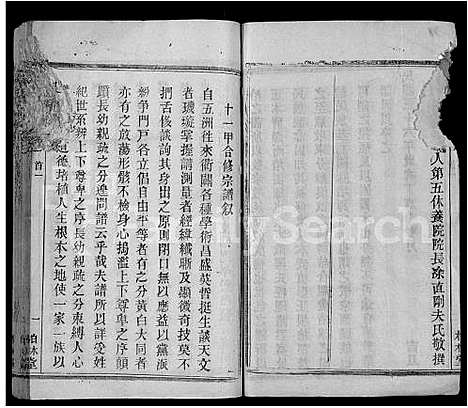 人第五休養院院長涂直剛夫氏敬撰
十一甲合修宗譜叙
自五洲往來衝闢各種學術昌盛英哲挺生談天文
者璣璇掌握講測量者經緯纖晰及顯微奇技莫不
捫舌侈談詢其身出之原則閉口無以應益以黨派
紛爭門戶各立詡自由平等者有分黃白大同者
亦有之放蕩形骸不檢身心搗濫上下尊卑之序顛
躓長幼親疏之分遑問譜云乎哉夫譜所以詳受姓
紀世系辨上下尊卑之序長幼親疏之分束縛人心
道德培植人生根本之地使一家一族以
首一
一
柏林堂
FamilySearch